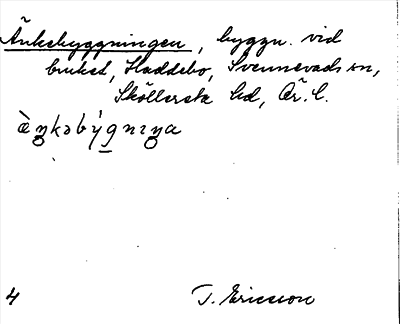 Änkebyggningen, byggn. vid
bruket, Haddebo, Svennevads sn,
Sköllersta hd, Ör. l.
ä̀ŋkəbýgnıŋa
4 T. Ericsson